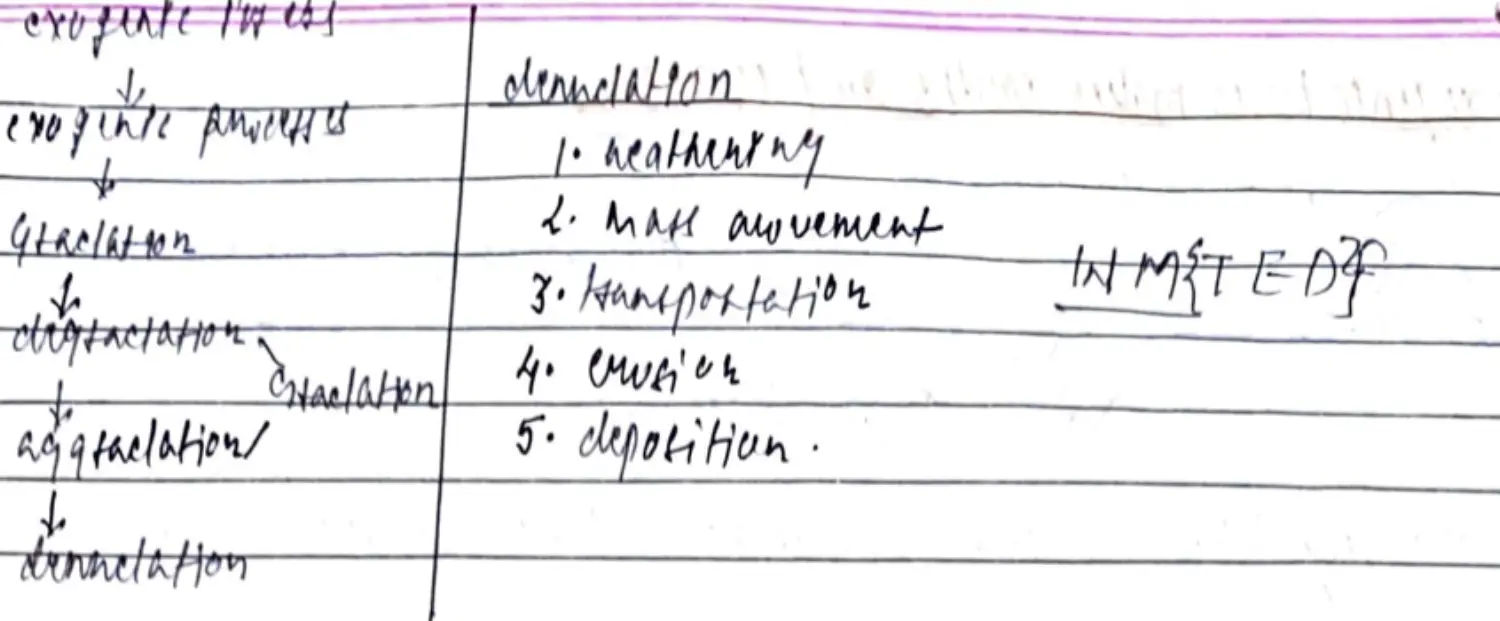 exogenic forces
↓
exogenic processes
↓
Gradation
↓
degradation
Gradation
↓
aggradation/
↓
denudation
denudation
1. weathering
2. mass movement
3. transportation
4. erosion
5. deposition.
WM{TED}